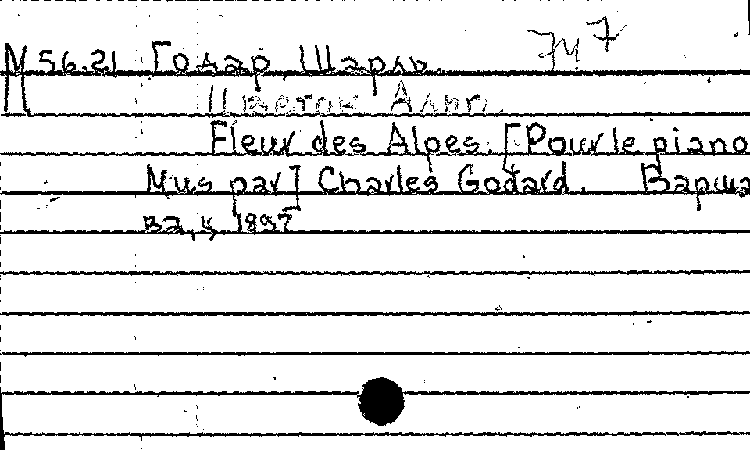 М 56.21 Годар, Шарль. 747
Цветок Альп.
Fleur des Alpes. [Pour le piano
Mus par] Charles Godard. Варша
ва, ц. 1897